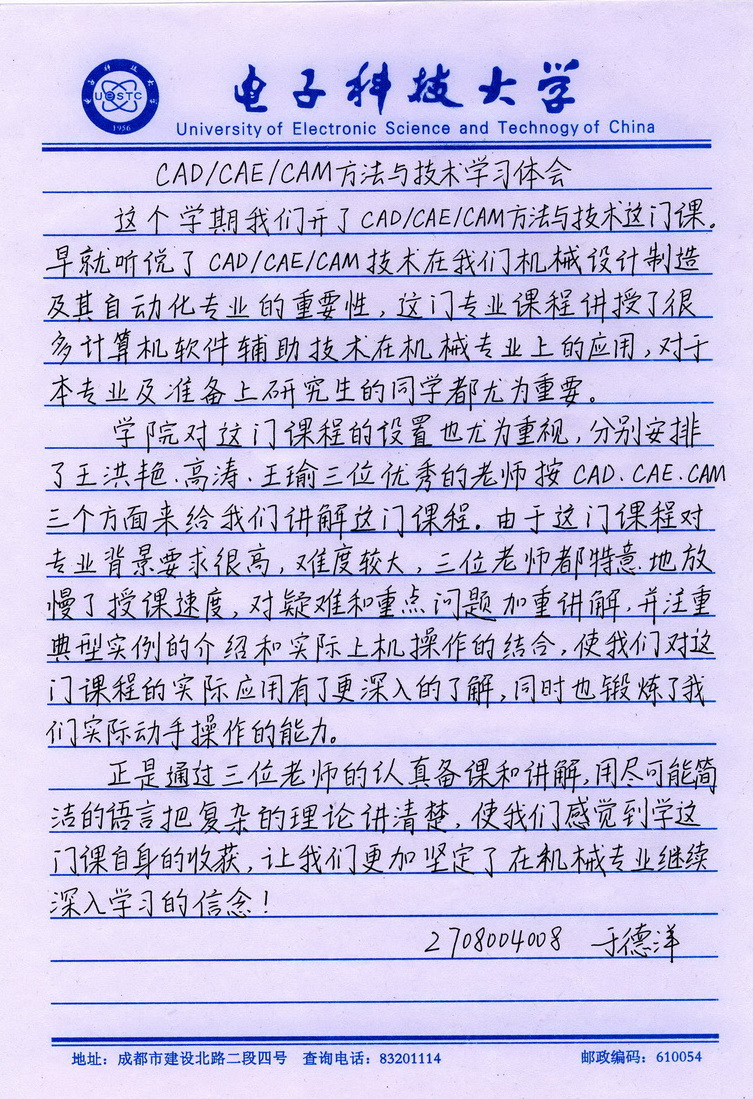 电子科技大学
UESTC
1956
University of Electronic Science and Technogy of China
CAD/CAE/CAM方法与技术学习体会
这个学期我们开了CAD/CAE/CAM方法与技术这门课。
早就听说了CAD/CAE/CAM技术在我们机械设计制造
及其自动化专业的重要性，这门专业课程讲授了很
多计算机软件辅助技术在机械专业上的应用，对于
本专业及准备上研究生的同学都尤为重要。
学院对这门课程的设置也尤为重视，分别安排
了王洪艳、高涛、王瑜三位优秀的老师按CAD、CAE、CAM
三个方面来给我们讲解这门课程。由于这门课程对
专业背景要求很高，难度较大，三位老师都特意地放
慢了授课速度，对疑难和重点问题加重讲解，并注重
典型实例的介绍和实际上机操作的结合，使我们对这
门课程的实际应用有了更深入的了解，同时也锻炼了我
们实际动手操作的能力。
正是通过三位老师的认真备课和讲解，用尽可能简
洁的语言把复杂的理论讲清楚，使我们感觉到学这
门课自身的收获，让我们更加坚定了在机械专业继续
深入学习的信念！
2708004008 于德洋
地址：成都市建设北路二段四号 查询电话：83201114 邮政编码：610054